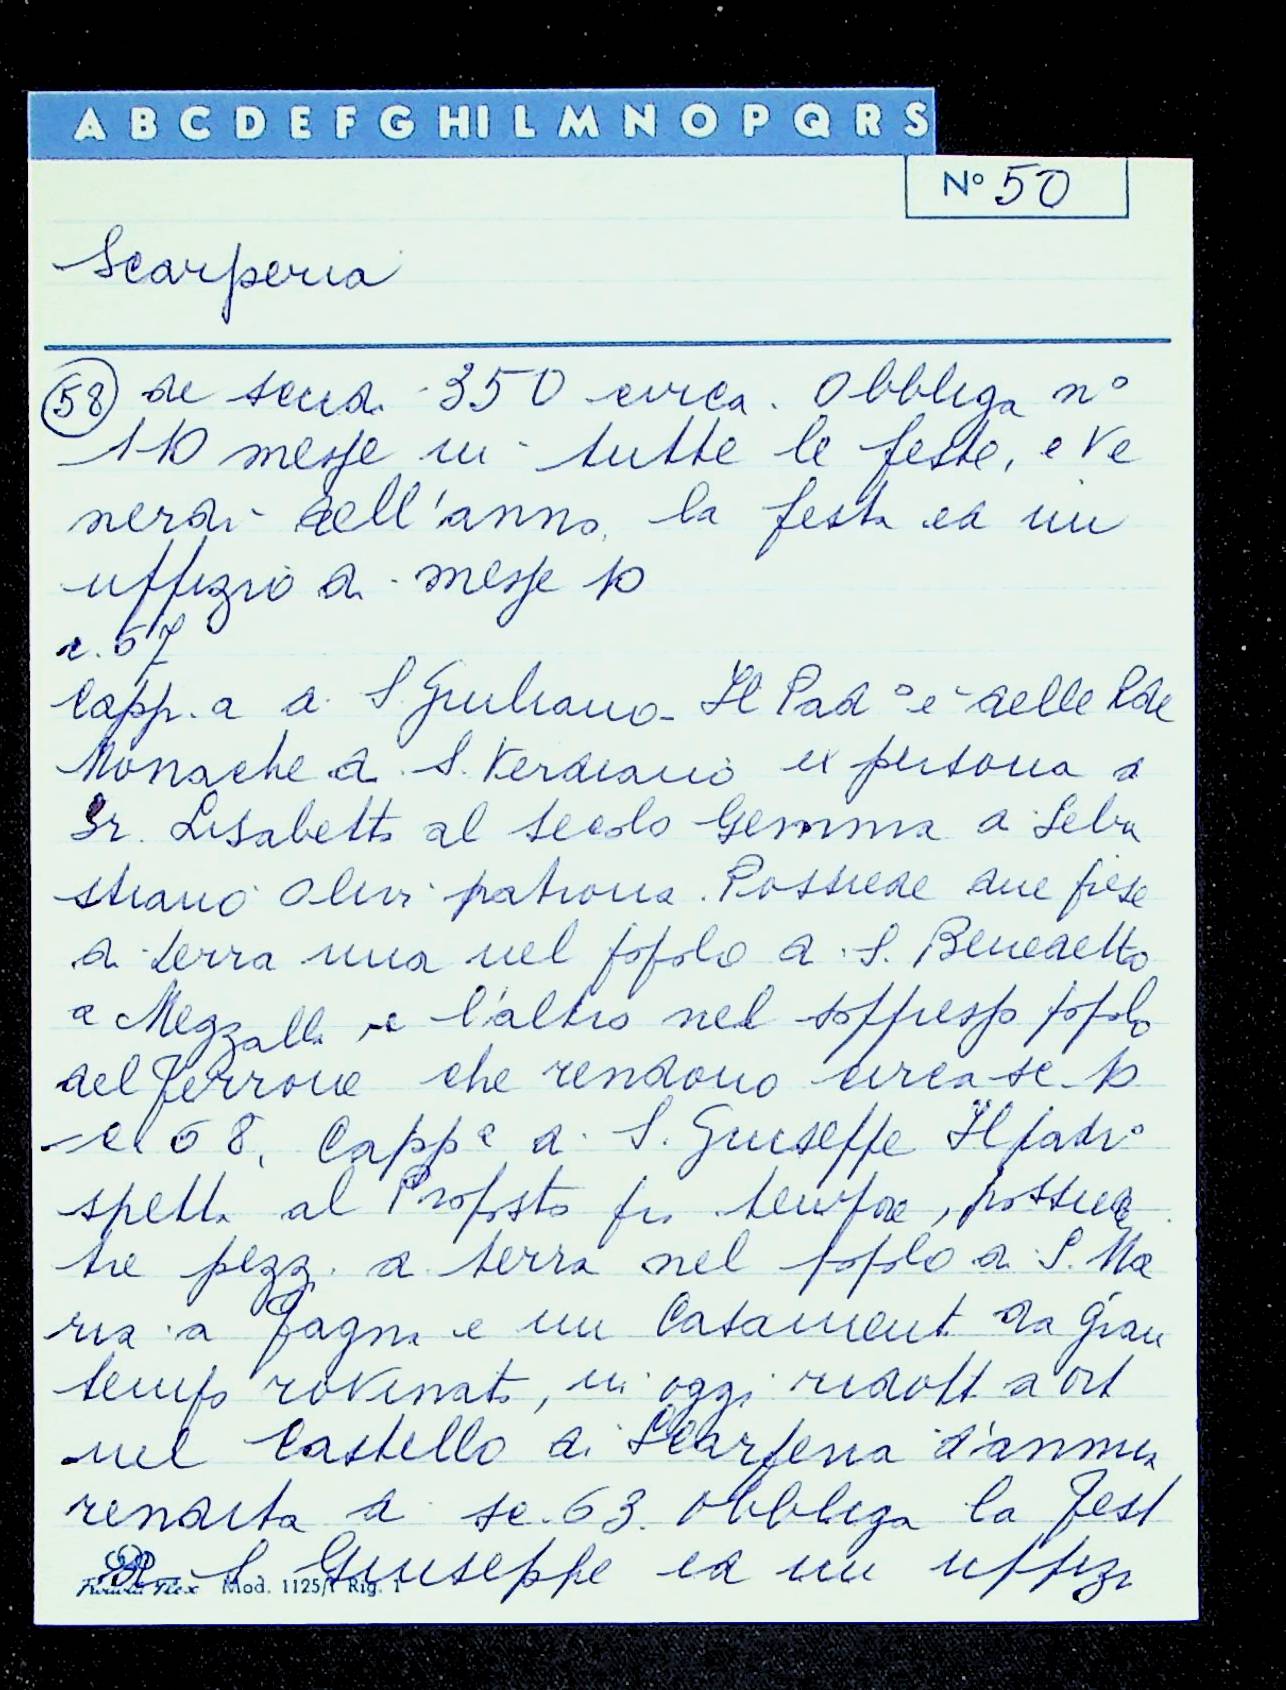 A B C D E F G H I L M N O P Q R S
N° 50
Scarperia
58 di scudi 350 circa. Obbliga n°
110 messe in tutte le feste, e Ve
nerdi dell'anno, la festa ed un
uffizio di messe 10
c. 67
Capp.a di S. Giuliano. Il Pad° è delle Rde
Monache di S. Verdiano in persona di
Sr. Lisabetta al secolo Gemma di Seba
stiano Olivi patrona. Possiede due prese
di terra una nel popolo di S. Benedetto
a Mezzalla e l'altro nel soppresso popolo
del Ferrone che rendono circa sc. 10
c. 68. Capp.a di S. Giuseppe Il padr°
spetta al Proposto pro tempore, possiede
tre pezzi di terra nel popolo di S. Ma
ria a Fagna e un Casamento da gran
tempo rovinato, in oggi ridotto a orto
nel Castello di Scarperia d'annua
rendita di sc. 63. Obbliga la Festa
di S. Giuseppe ed un uffizi
Mod. 1125/1 Rig. 1